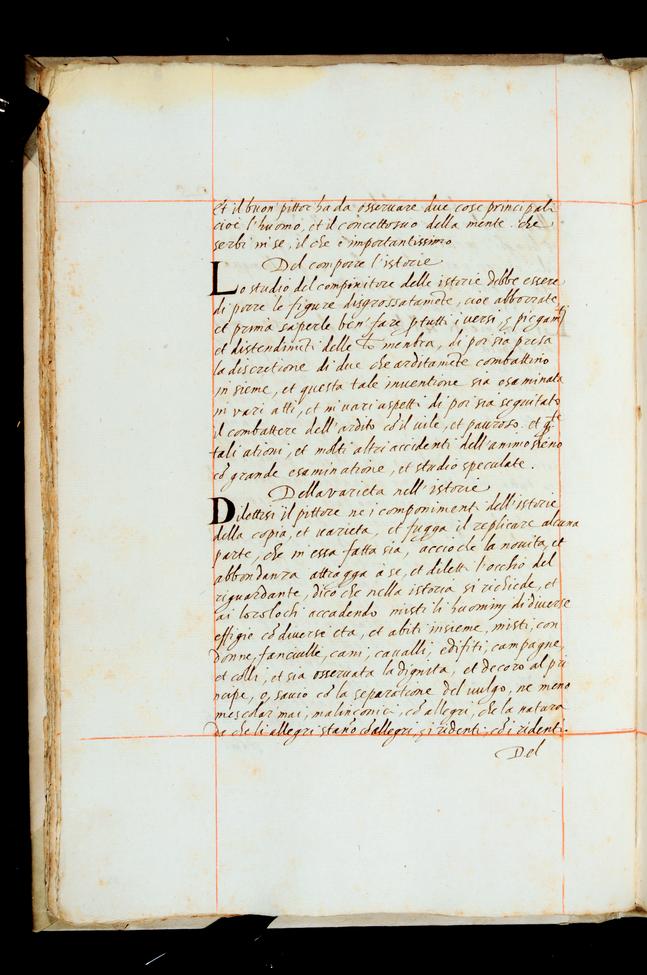 et il buon' pittor ha da osseruare due cose principali
cioe l'huomo, et il concetto suo della mente. che
serbi in se, il che e importantissimo
Del comporre l'istorie
Lo studio del componitore delle istorie debbe essere
di porre le figure disgrossatamēte, cioe abbozzate
et prima saperle ben' fare ꝑ tutti i versi, et piegamti
et distendimēti delle lor menbra, di poi sia presa
la discretione di due che arditamēte combattino
insieme, et questa tale inuentione sia esaminata
in vari atti, et in' vari aspetti di poi sia seguitato
il combattere dell'ardito cō il vile, et pauroso. et qste
tali ationi, et molti altri accidenti dell'animo sieno
cō grande esaminatione, et studio speculate.
Della varieta nell'istorie
Dilettisi il pittore ne i componimenti dell'istorie
della copia, et varieta, et fugga il replicare alcuna
parte, che in essa fatta sia, accio che la nouita, et
abbondanza attragga a se, et diletti l'occhio del
riguardante, dico che nella istoria si richiede, et
ai loro lochi accadendo misti li huominj di diuerse
effigie cō diuerse eta, et abiti insieme, misti, con
donne, fanciulle, cani, caualli, edifiti, campagne,
et colli, et sia osseruata la dignita, et decoro al prī
ncipe, o, sauio cō la separatione del vulgo, ne meno
mescolar' mai, malinconici, cō allegri, che la natura
da che li allegri stano cō allegri, et i ridenti, cō i ridenti.
Del